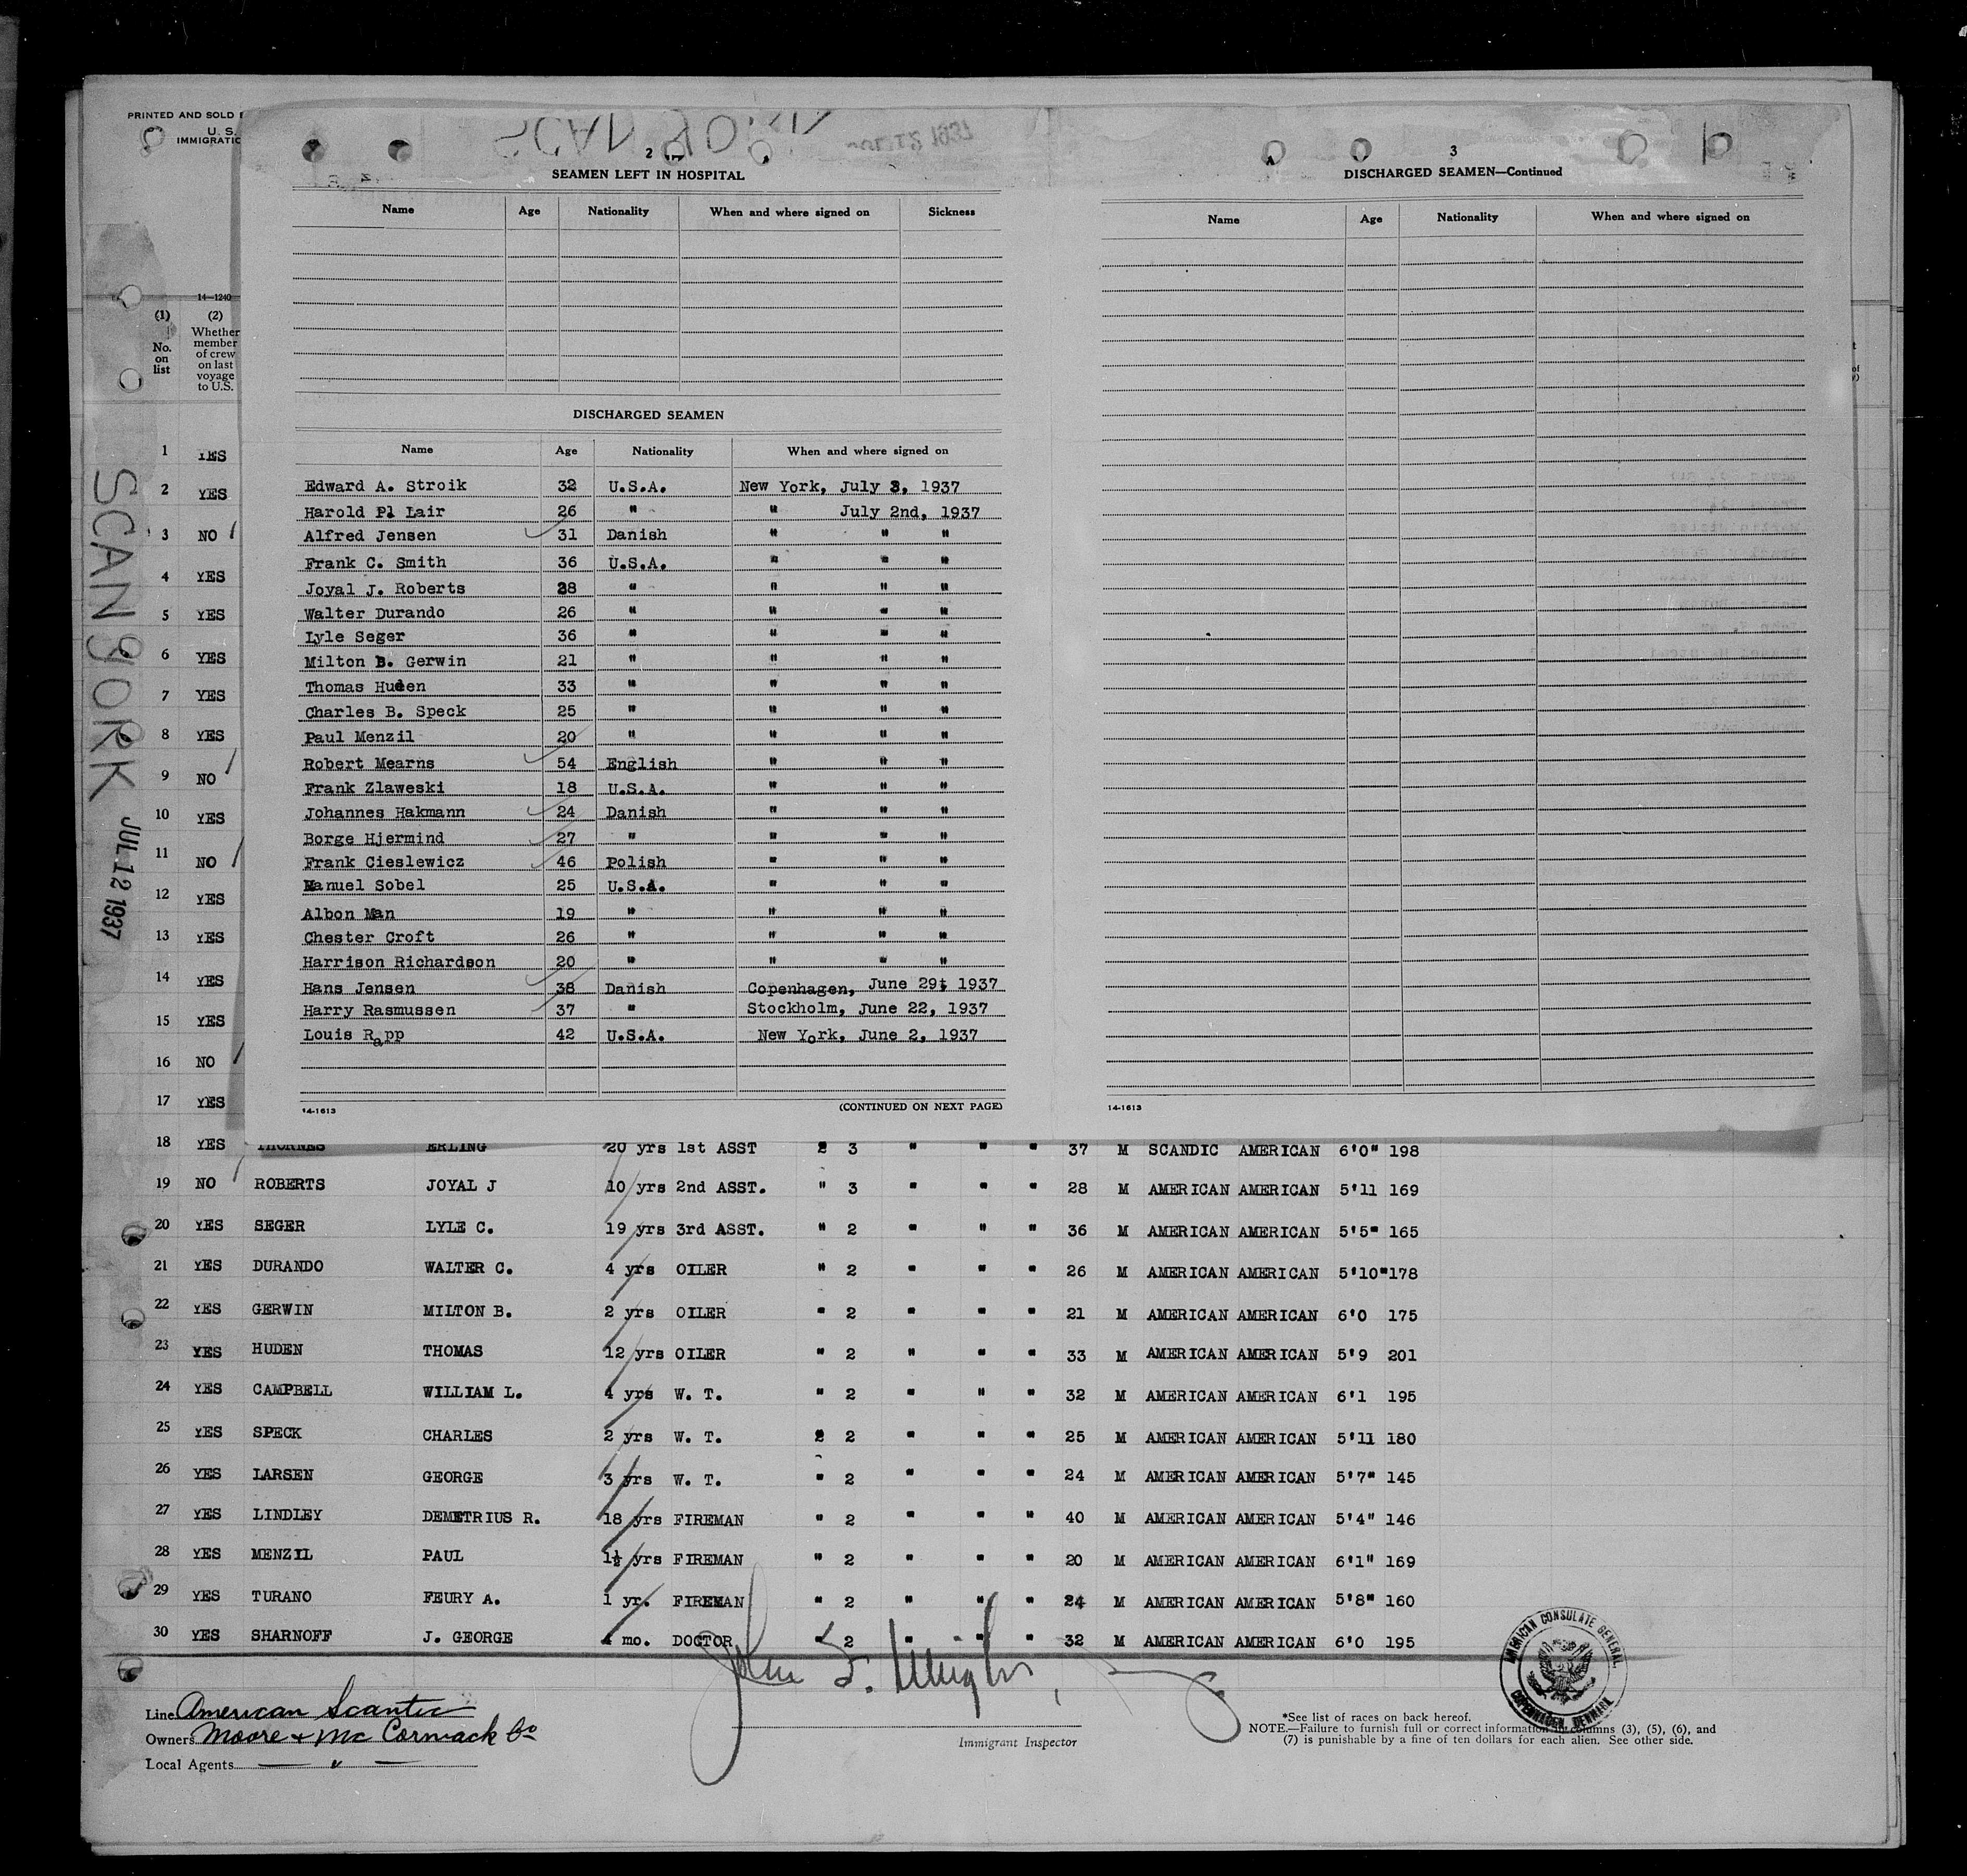 PRINTED AND SOLD
U. S.
IMMIGRATIO
SCANYORK
JUL 12 1937
2
SEAMEN LEFT IN HOSPITAL
Name Age Nationality When and where signed on Sickness
DISCHARGED SEAMEN
Name Age Nationality When and where signed on
Edward A. Stroik 32 U.S.A. New York, July 3, 1937
Harold Pl Lair 26 " " July 2nd, 1937
Alfred Jensen 31 Danish " " "
Frank C. Smith 36 U.S.A. " " "
Joyal J. Roberts 28 " " " "
Walter Durando 26 " " " "
Lyle Seger 36 " " " "
Milton B. Gerwin 21 " " " "
Thomas Huden 33 " " " "
Charles B. Speck 25 " " " "
Paul Menzil 20 " " " "
Robert Mearns 54 English " " "
Frank Zlaweski 18 U.S.A. " " "
Johannes Hakmann 24 Danish " " "
Borge Hjermind 27 " " " "
Frank Cieslewicz 46 Polish " " "
Manuel Sobel 25 U.S.A. " " "
Albon Man 19 " " " "
Chester Croft 26 " " " "
Harrison Richardson 20 " " " "
Hans Jensen 38 Danish Copenhagen, June 29t 1937
Harry Rasmussen 37 " Stockholm, June 22, 1937
Louis Rapp 42 U.S.A. New York, June 2, 1937
14-1613 (CONTINUED ON NEXT PAGE)
3
DISCHARGED SEAMEN—Continued
Name Age Nationality When and where signed on
14-1613
14—1240
(1) (2)
No. on list
Whether member of crew on last voyage to U.S.
1 YES
2 YES
3 NO
4 YES
5 YES
6 YES
7 YES
8 YES
9 NO
10 YES
11 NO
12 YES
13 YES
14 YES
15 YES
16 NO
17 YES
18 YES THORNES ERLING 20 yrs 1st ASST 2 3 " " " 37 M SCANDIC AMERICAN 6'0" 198
19 NO ROBERTS JOYAL J 10 yrs 2nd ASST. " 3 " " " 28 M AMERICAN AMERICAN 5'11 169
20 YES SEGER LYLE C. 19 yrs 3rd ASST. " 2 " " " 36 M AMERICAN AMERICAN 5'5" 165
21 YES DURANDO WALTER C. 4 yrs OILER " 2 " " " 26 M AMERICAN AMERICAN 5'10" 178
22 YES GERWIN MILTON B. 2 yrs OILER " 2 " " " 21 M AMERICAN AMERICAN 6'0 175
23 YES HUDEN THOMAS 12 yrs OILER " 2 " " " 33 M AMERICAN AMERICAN 5'9 201
24 YES CAMPBELL WILLIAM L. 4 yrs W. T. " 2 " " " 32 M AMERICAN AMERICAN 6'1 195
25 YES SPECK CHARLES 2 yrs W. T. 2 " " " 25 M AMERICAN AMERICAN 5'11 180
26 YES LARSEN GEORGE 3 yrs W. T. " 2 " " " 24 M AMERICAN AMERICAN 5'7" 145
27 YES LINDLEY DEMETRIUS R. 18 yrs FIREMAN " 2 " " " 40 M AMERICAN AMERICAN 5'4" 146
28 YES MENZIL PAUL 1½ yrs FIREMAN " 2 " " " 20 M AMERICAN AMERICAN 6'1" 169
29 YES TURANO FEURY A. 1 yr. FIREMAN " 2 " " " 24 M AMERICAN AMERICAN 5'8" 160
30 YES SHARNOFF J. GEORGE 4 mo. DOCTOR " 2 " " " 32 M AMERICAN AMERICAN 6'0 195
Line American Scantic
Owners Moore & Mc Cormack Co
Local Agents "
Immigrant Inspector
AMERICAN CONSULATE GENERAL,
COPENHAGEN, DENMARK
*See list of races on back hereof.
NOTE.—Failure to furnish full or correct information in columns (3), (5), (6), and
(7) is punishable by a fine of ten dollars for each alien. See other side.